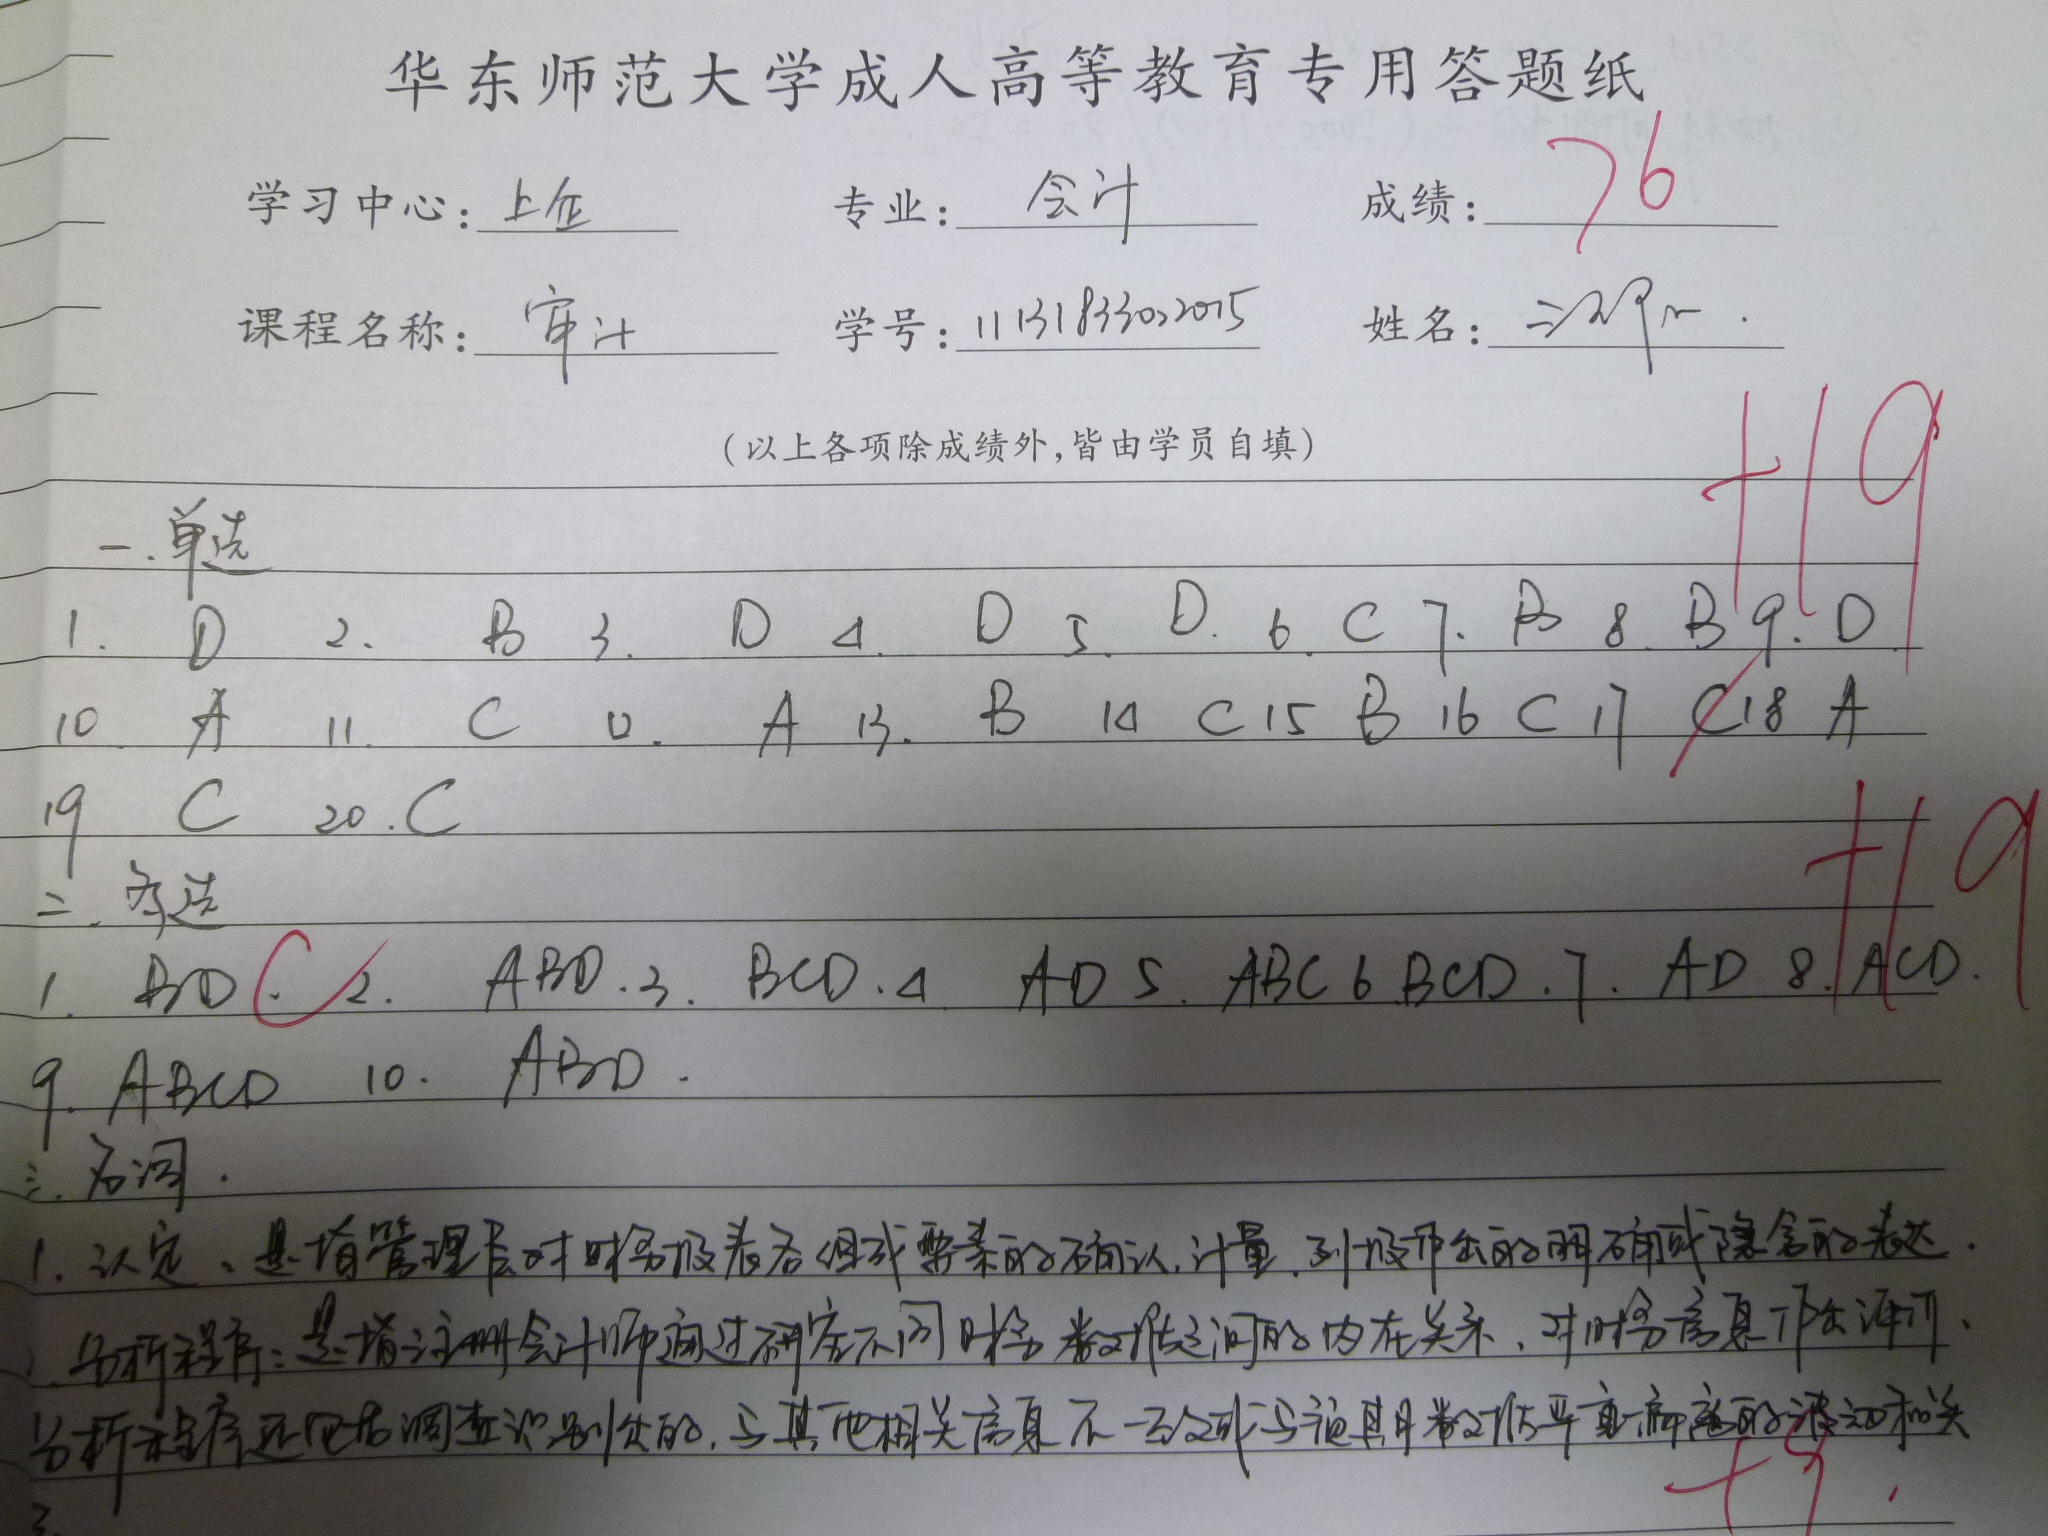 华东师范大学成人高等教育专用答题纸
学习中心: 上企 专业: 会计 成绩: 76
课程名称: 审计 学号: 姓名:
(以上各项除成绩外,皆由学员自填)
+19
一.单选
1. D 2. B 3. D 4. D 5. D. 6. C 7. B 8. B 9. D
10. A 11. C 12. A 13. B 14 C 15 B 16 C 17 C 18 A
19 C 20. C
+19
二.多选
1. BD. C 2. ABD. 3. BCD. 4 AD 5. ABC 6 BCD. 7. AD 8. ACD.
9. ABCD 10. ABD.
三.名词.
1. 认定、是指管理层对财务报表各组成要素的确认.计量.列报作出的明确或隐含的表达.
2.分析程序:是指注册会计师通过研究不同财务数据之间的内在关系.对财务信息作出评价.
分析程序还包括调查识别出的.与其他相关信息不一致或与预期数据严重偏离的波动和关
3.